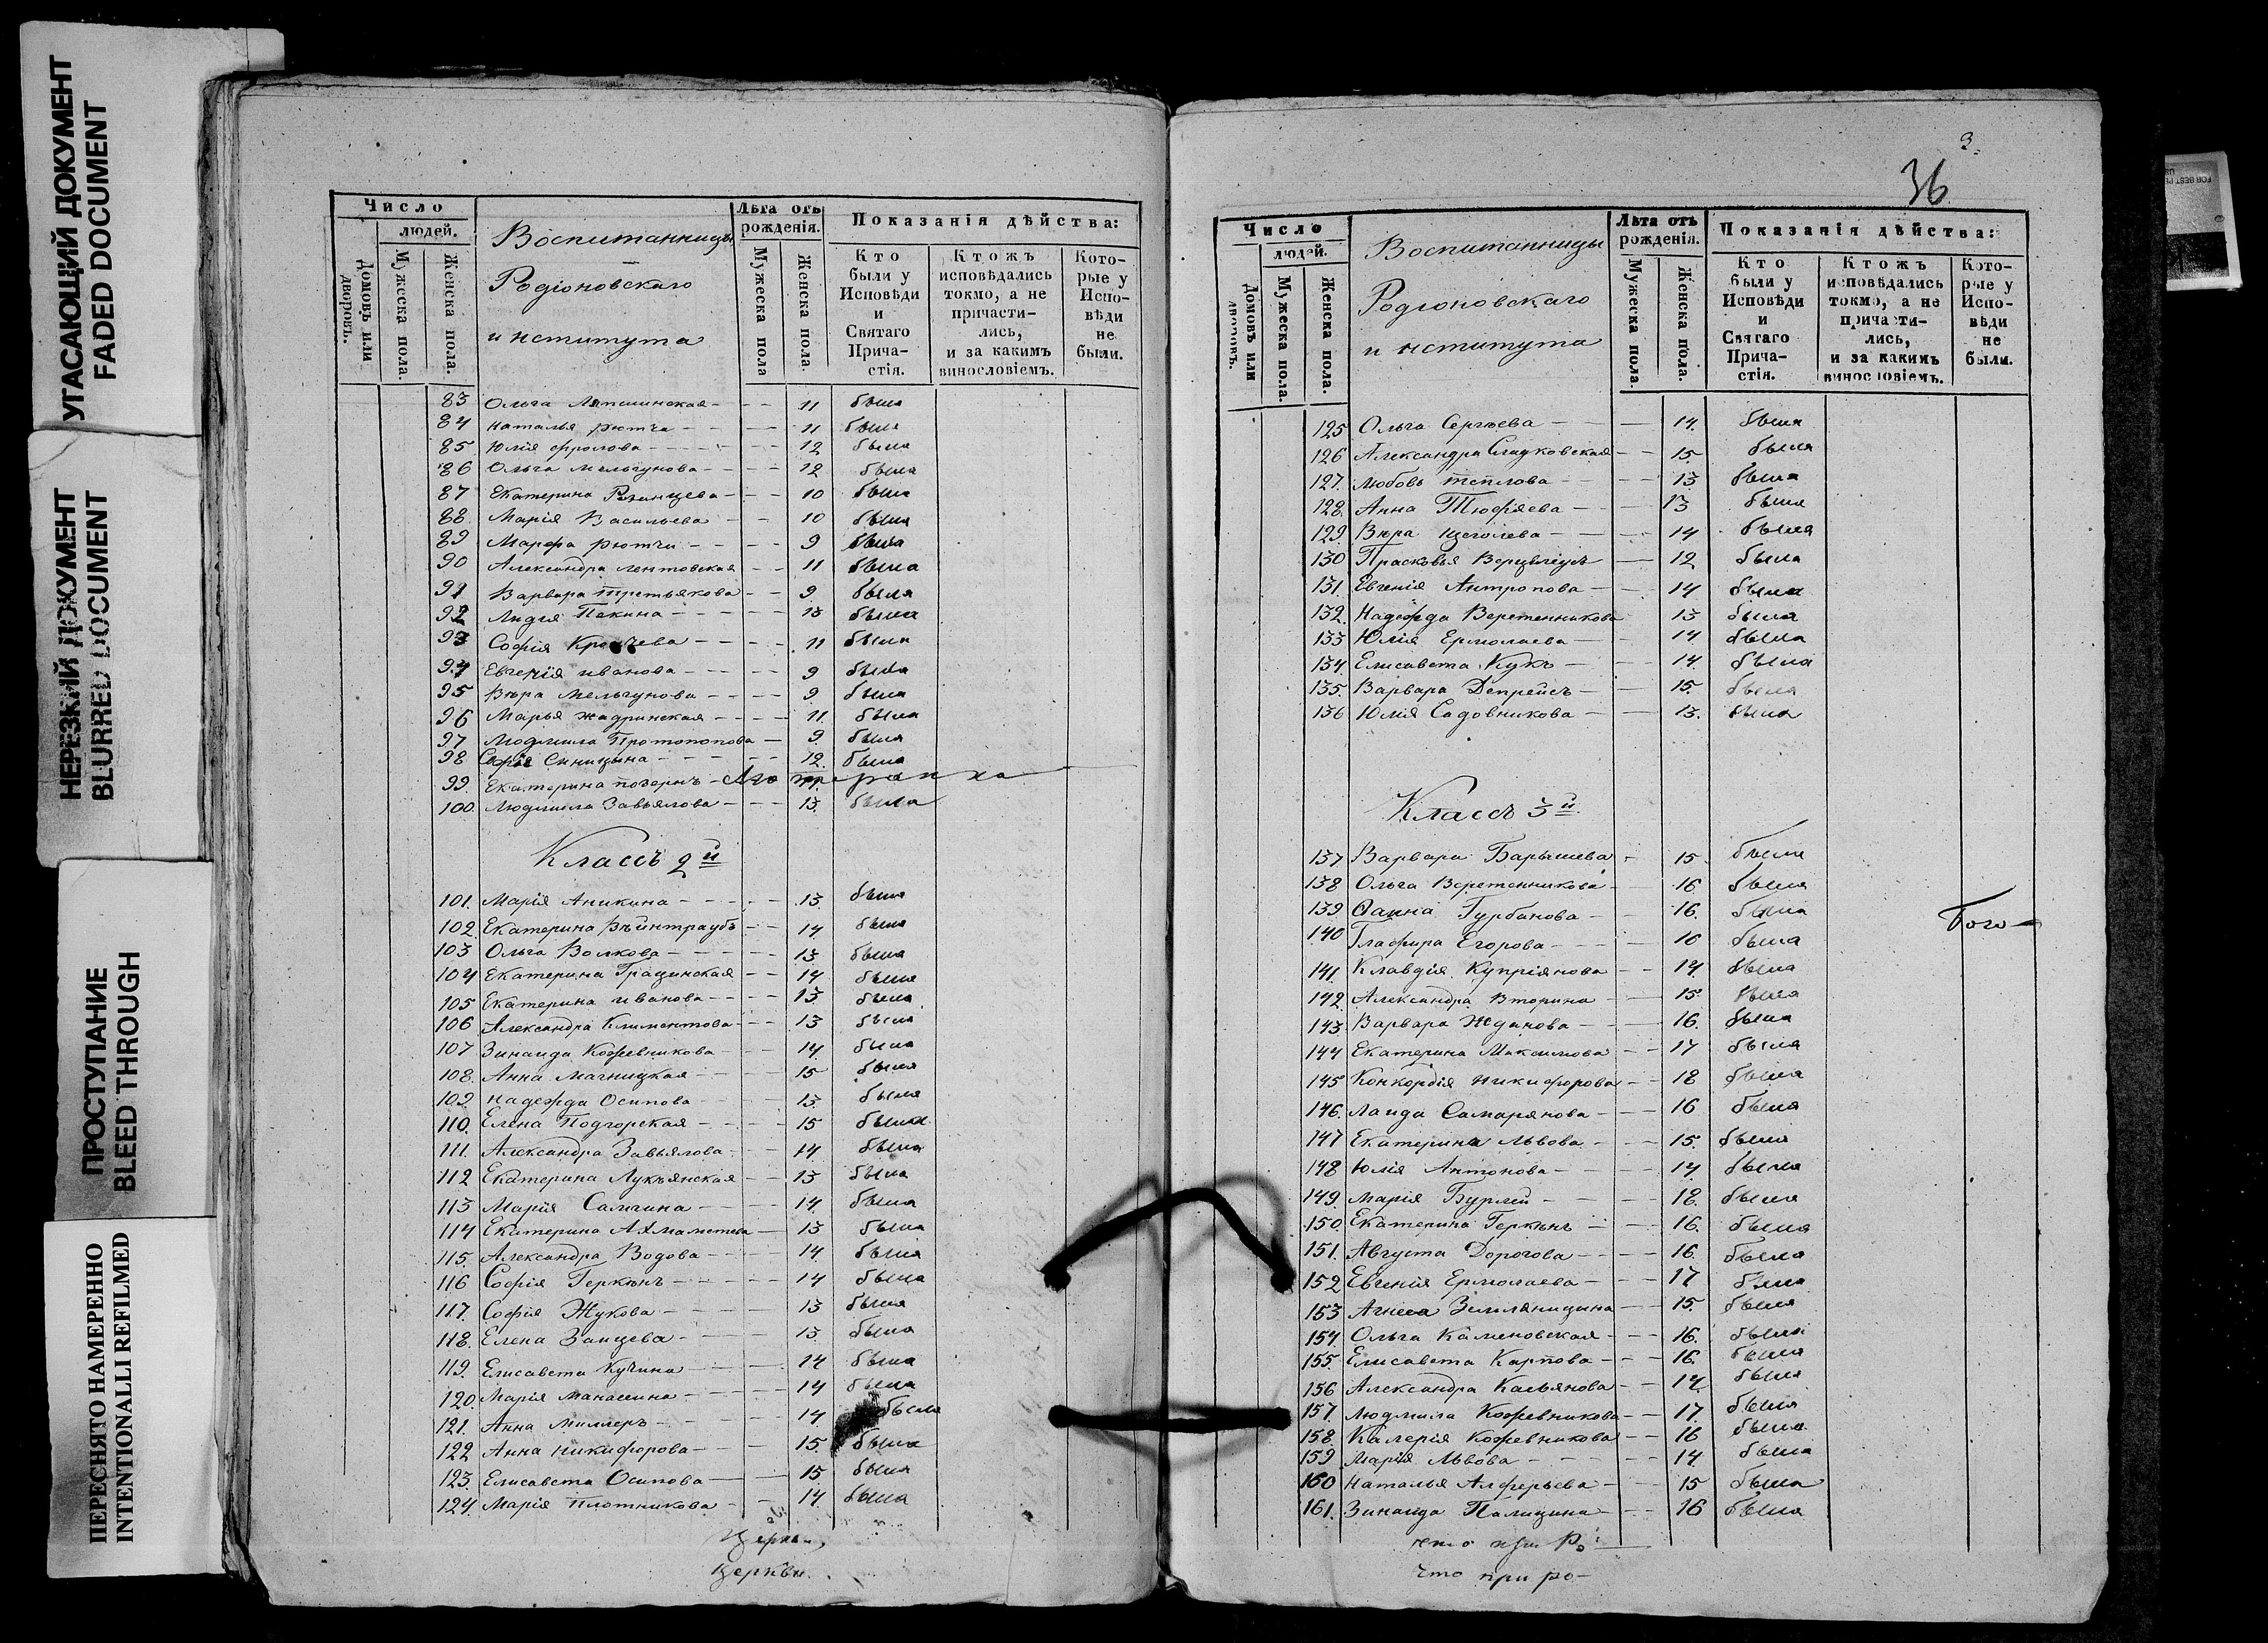 УГАСАЮЩИЙ ДОКУМЕНТ
FADED DOCUMENT
НЕРЕЗКИЙ ДОКУМЕНТ
BLURRED DOCUMENT
ПРОСТУПАНИЕ
BLEED THROUGH
ПЕРЕСНЯТО НАМЕРЕННО
INTENTIONALLI REFILMED
Число
людей.
Домовъ или дворовъ.
Мужеска пола.
Женска пола.
Воспитанницы
Родіоновскаго
института
Лѣта отъ рожденія.
Мужеска пола
Женска пола.
Показанія дѣйства:
Кто были у Исповѣди и Святаго Прича-стія.
Ктожъ исповѣдались токмо, а не причасти-лись, и за какимъ винословіемъ.
Кото-рые у Испо-вѣди не были.
83 Ольга 11 была
84 Наталья Рютчи 11 была
85 Юлія Фролова 12 была
86 Ольга Мельгунова 12 была
87 Екатерина 10 была
88. Марія Васильева 10 была
89 Марфа Рютчи 9 была
90 Александра Лентовская 11 была
91 Варвара Третьякова 9 была
92 Лидія Пекина 13 была
93 Софія 11 была
94 Евгенія Иванова 9 была
95 Вѣра Мельгунова 9 была
96 Марья Жадринская 11. была
97 Людмила Протопопова 9. была
98 Софія Синицына 12. была
99. Екатерина Лютеранка
100. Людмила Завьялова 13. была
Классъ 2й
101. Марія Аникина 13. была
102. Екатерина Вейнтраубъ 14 была
103 Ольга Волкова 13 была
104 Екатерина Грацинская 14 была
105 Екатерина Иванова 13. была
106 Александра Климентова 13 была
107 Зинаида Кожевникова 14. была
108. Анна Магницкая 15 была
109. Надежда Осипова 13. была
110. Елена Подгорская 15 была
111. Александра Завьялова 14 была
112 Екатерина Лукьянская 13 была
113 Марія Салнина 14. была
114 Екатерина Ахмаметева 13 была
115. Александра Водова 14. была
116 Софія Геркенъ 14 была
117. Софія Жукова 13 была
118. Елена Заицева 13. была
119. Елисавета Кучина 14 была
120. Марія Манасеина 14 была
121. Анна Миллеръ 14 была
122 Анна Никифорова 15. была
123. Елисавета Осипова 15 была
124. Марія Плотникова 14 была
Церкви
3.
36
Число
людей.
Домовъ или дворовъ.
Мужеска пола.
Женска пола.
Воспитанницы
Родіоновскаго
института
Лѣта отъ рожденія.
Мужеска пола.
Женска пола.
Показанія дѣйства:
Кто были у Исповѣди и Святаго Прича-стія.
Ктожъ исповѣдались токмо, а не причасти-лись, и за какимъ винословіемъ.
Кото-рые у Испо-вѣди не были.
125 Ольга Сергѣева 14. была
126 Александра Сладковская 15. была
127. Любовь Теплова 13 была
128. Анна Тюфяева 13 была
129. Вѣра Щеголева 14 была
130 Прасковья 12 была
131. Евгенія Антропова 14 была
132. Надежда Веретенникова 13 была
133 Юлія Ермолаева 14 была
134. Елисавета Кукъ 14. была
135. Варвара Депрейсъ 15. была
136 Юлія Садовникова 13. была
Классъ 3й
137 Варвара Барышева 15 была
138 Ольга Веретенникова 16 была
139. Фаина Гурбанова 16. была
140 Глафира Егорова 16 была
Бого-
141. Клавдія Купріянова 14. была
142. Александра Вторина 15 была
143. Варвара Жданова 16. была
144 Екатерина Максимова 17 была
145 Конкордія Никифорова 18 была
146. Лаида Самарянова 16 была
147 Екатерина Львова 15. была
148 Юлія Антонова 14. была
149. Марія Бурлей 18. была
150. Екатерина Геркенъ 16. была
151. Августа Дорогова 16. была
152 Евгенія Ермолаева 17 была
153 Агнеса Земляницына 15. была
154. Ольга Каменовская 16. была
155. Елисавета Карпова 16. была
156 Александра Касьянова 14. была
157. Людмила Кожевникова 17. была
158 Калерія Кожевникова 16 была
159 Марія Львова 14 была
160 Наталья Алферьева 15 была
161. Зинаида Палицына 16 была
что при Ро
что при ро-